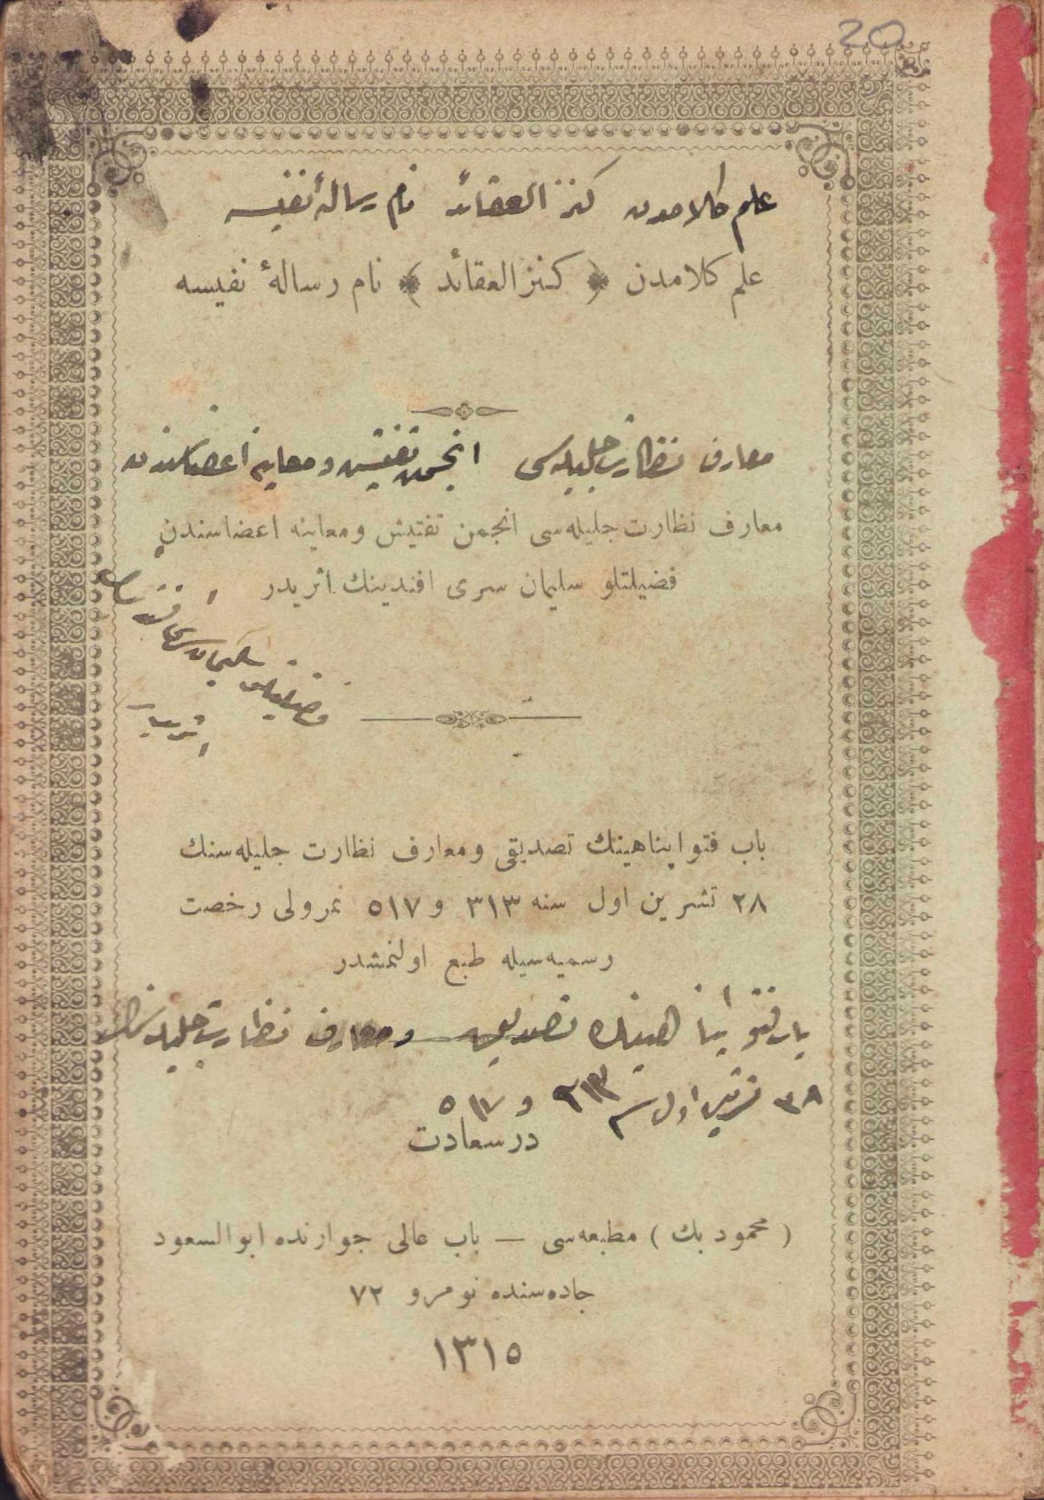 20
علم كلامدن كنز العقائد نام رسالۀ نفيسه
علم كلامدن ﴿ كنز العقائد ﴾ نام رسالۀ نفيسه
معارف نظارت جليله‌سى انجمن تفتيش ومعاينه اعضاسندن
معارف نظارت جليله‌سى انجمن تفتيش ومعاينه اعضاسندن
فضيلتلو سليمان سرى افندينك اثريدر
فضيلتلو سليمان سرى افندينك
اثريدر
باب فتوا پناهينك تصديقى ومعارف نظارت جليله‌سنك
٢٨ تشرين اول سنه ٣١٣ و ٥١٧ نمرولى رخصت
رسميه‌سيله طبع اولنمشدر
باب فتوا پناهينك تصديقى ومعارف نظارت جليله‌سنك
٢٨ تشرين اول سنه ٣١٣ و ٥١٧
درسعادت
( محمود بك ) مطبعه‌سى — باب عالى جوارنده ابوالسعود
جاده‌سنده نومرو ٧٢
١٣١٥